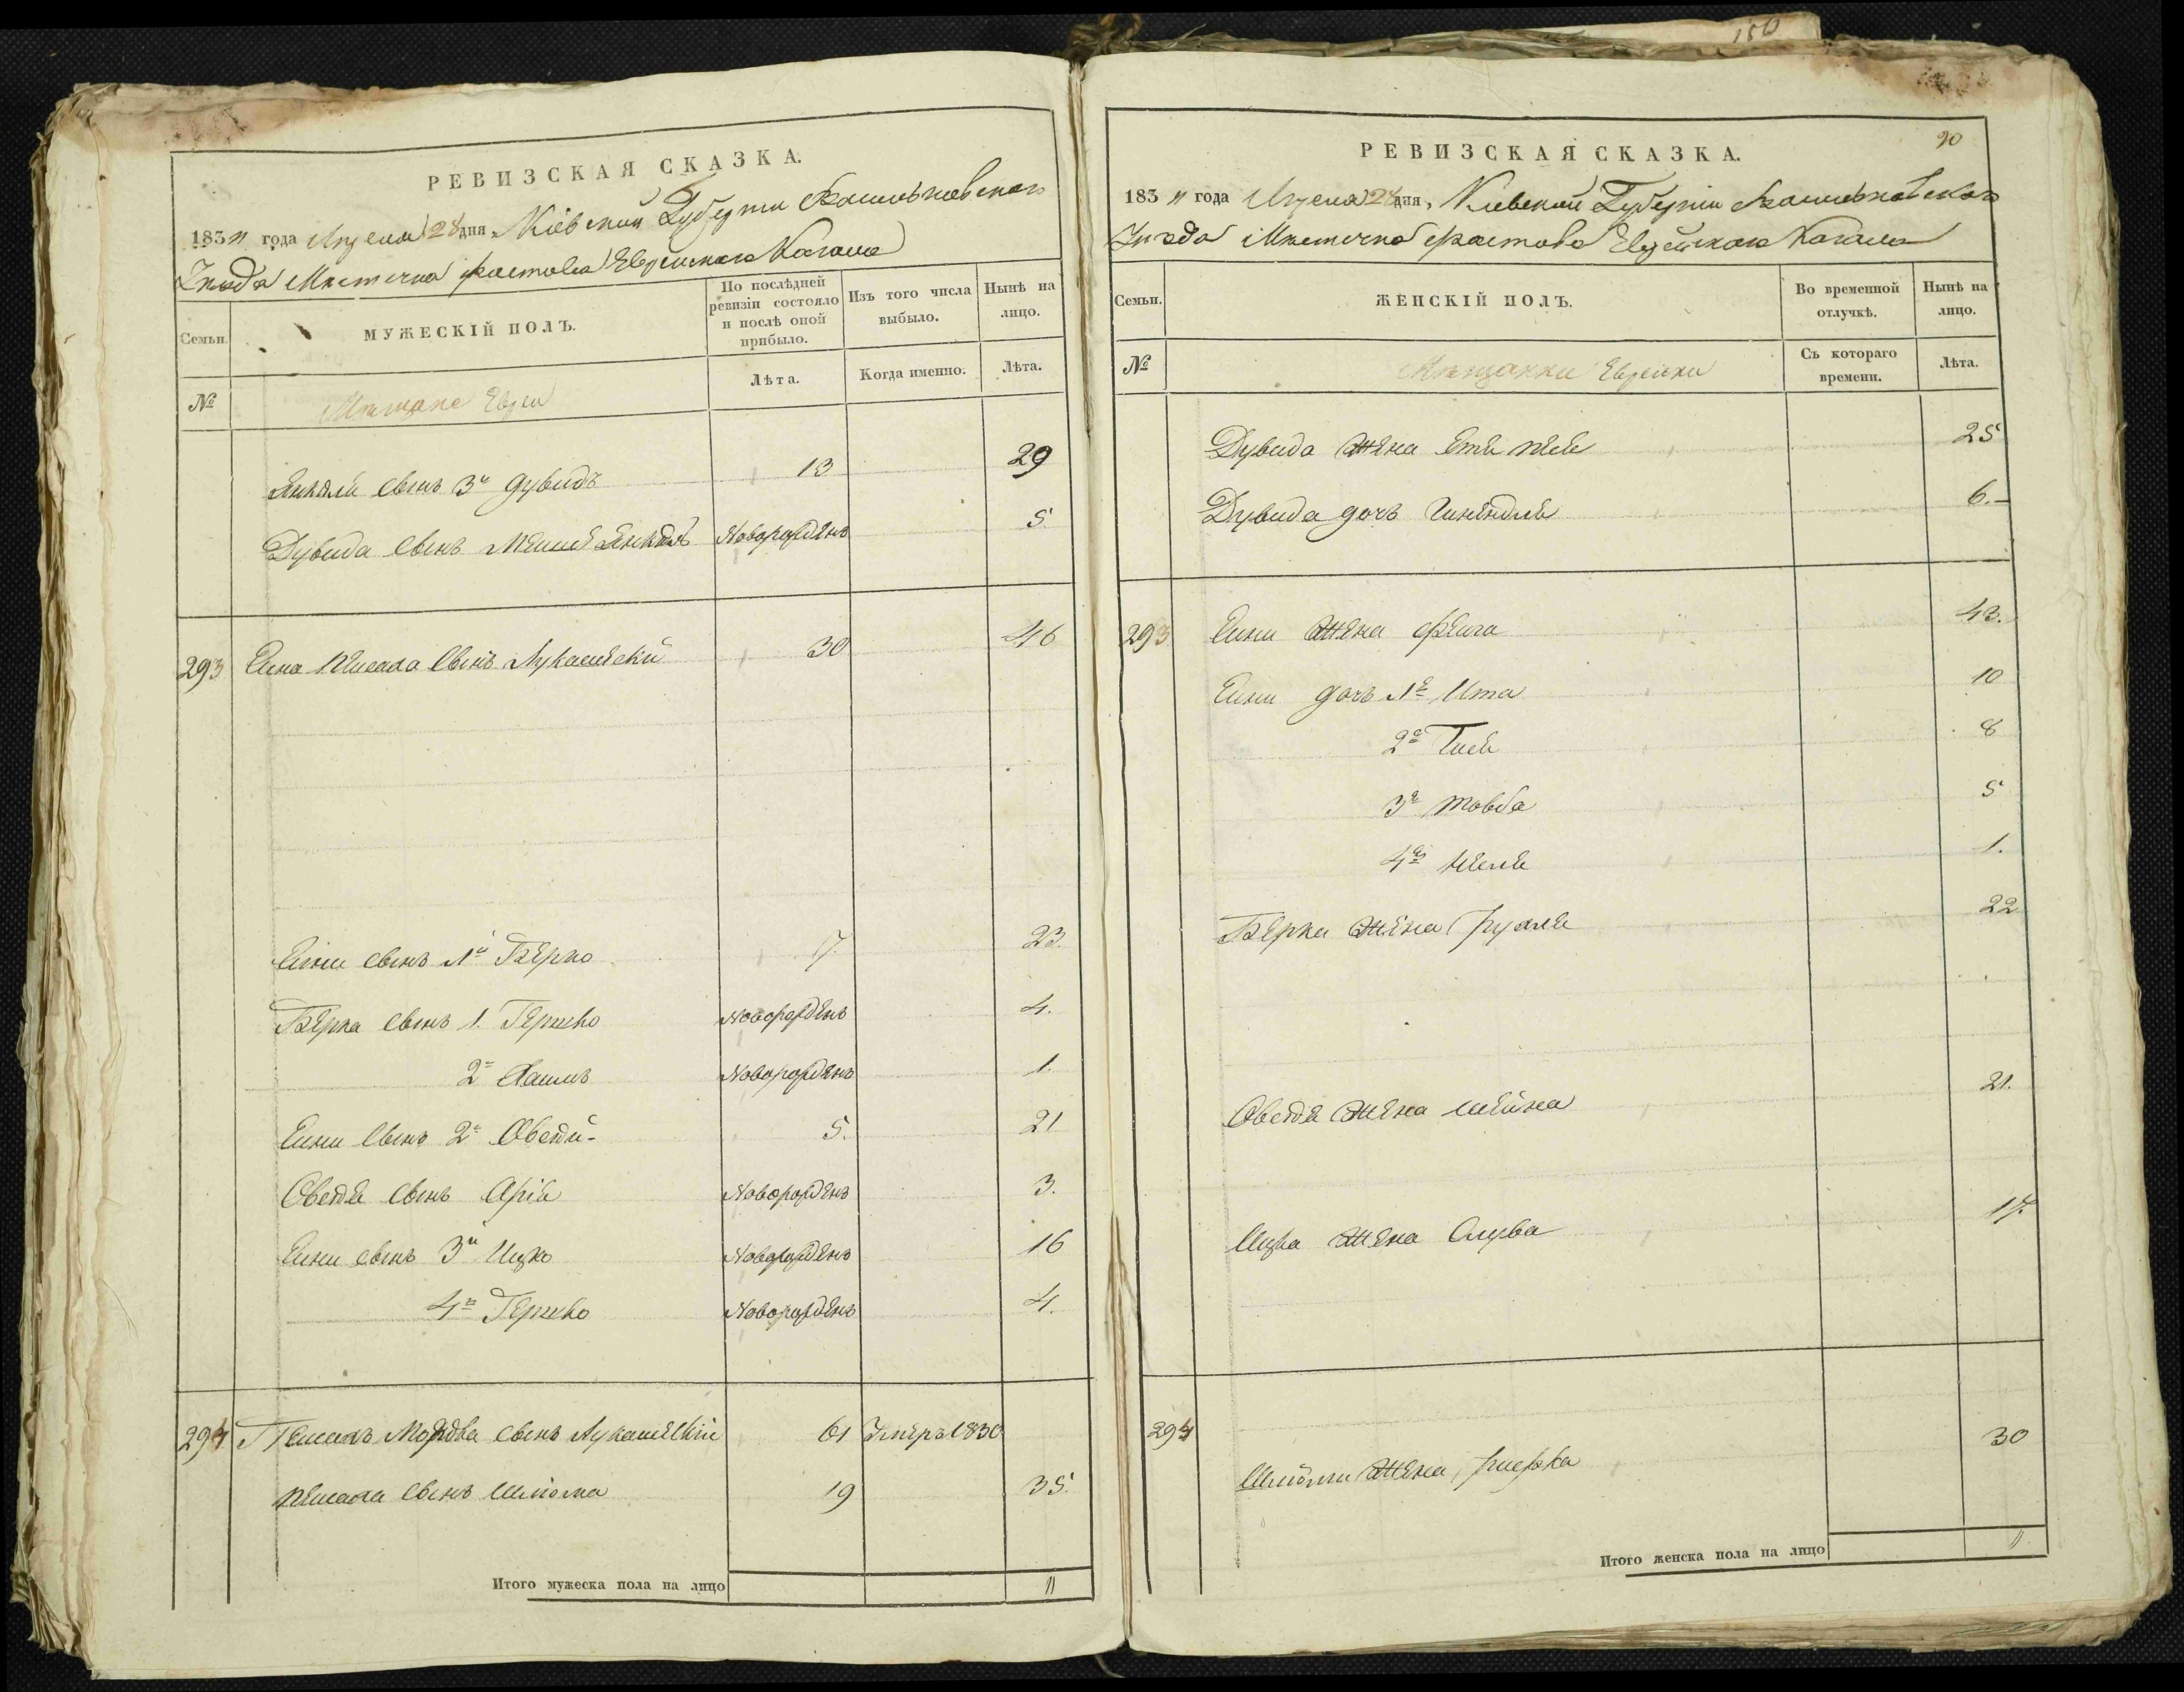 150
РЕВИЗСКАЯ СКАЗКА.
1834 года Апреля 28 дня, Кіевской Губерніи Васильковского
Уезда Местечка Фастова Еврейскаго Кагала
Семьи.
МУЖЕСКІЙ ПОЛЪ.
По послѣдней ревизіи состояло и послѣ оной прибыло.
Изъ того числа выбыло.
Нынѣ на лицо.
№
Мещане Евреи
Лѣта.
Когда именно.
Лѣта.
Янкеля сынъ 3й Дувидъ 13 29
Дувида сынъ Мошко Янкель Новорожденъ 5
293 Сынъ Лукашевскій 30 46
сынъ 1й Берко 7. 23.
Берка сынъ 1. Гершко Новорожденъ 4.
2й Новорожденъ 1.
сынъ 2й Овсей 5. 21
Овсея сынъ Арія Новорожденъ 3.
сынъ 3й Ицко Новорожденъ 16
4й Гершко Новорожденъ 4.
294 Мордка сынъ Лукашевскій 61 Умеръ 1830
сынъ Шлиома 19 35.
Итого мужеска пола на лицо 11
20
РЕВИЗСКАЯ СКАЗКА.
1834 года Апреля 28 дня, Кіевской Губерніи Васильковскаго
Уезда Местечка Фастова Еврейскаго Кагала
Семьи.
ЖЕНСКІЙ ПОЛЪ.
Во временной отлучкѣ.
Нынѣ на лицо.
№
Мещанки Еврейки
Съ котораго времени.
Лѣта.
Дувида жена 25
Дувида дочь 6.
293 жена Фейга 43.
дочь 1я Ита 10
2я 8
3я Товба 5
4я 1.
Берка жена Рухля 22
Овсея жена Шейна 21.
Ицка жена Слува 17.
294
Шлиомы жена Ривка 30
Итого женска пола на лицо 11